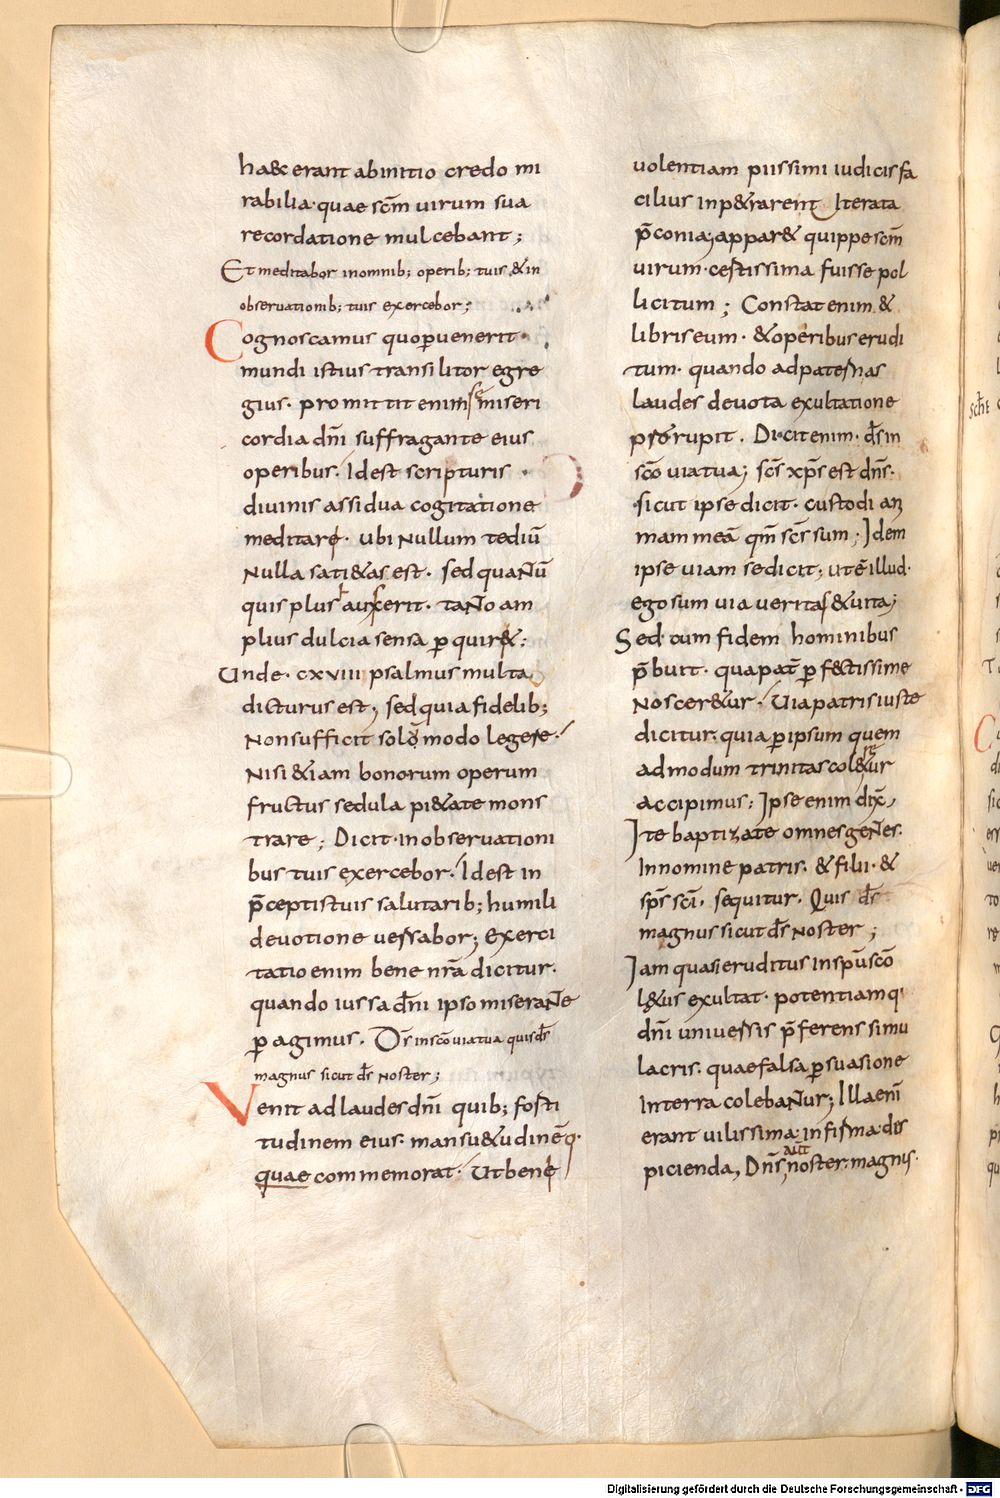 ha&c erant abinitio credo mi
rabilia· quae scm̄ uirum sua
recordatione mulcebant;
Et meditabor inomnib; operib; tuis & in
obseruationib; tuis exercebor;
Cognoscamus quo p̱uenerit
mundi istius transilitor egre
gius· promittit enim se miseri
cordia dn̄i suffragante eius
operibus· Idest scripturis
diuinis assidua cogitatione
meditare· ubi Nullum tediū
Nulla sati&as est· sed quaNtū
quis plus auxerit· taNto am
plius dulcia sensa p̱quir&;
Unde· cxviii psalmus multa
dicturus est; sed quia fidelib;
Non sufficit solo modo legere·
Nisi &iam bonorum operum
fructus sedula pi&ate mons
trare; Dicit· in obseruationi
bus tuis exercebor· Idest in
p̄ceptis tuis salutarib; humili
deuotione uersabor; Exerci
tatio enim bene nr̄a dicitur·
quando iussa dn̄i ipso miseraNte
p̱agimus· Ds̄ in sc̄o uia tua quis ds̄
magnus sicut ds̄ Noster;
Venit ad laudes dn̄i quib; forti
tudinem eius· mansu&udinēq·
quae commemorat· Ut bene
uolentiam piissimi iudicis fa
cilius inp&rarent Iterata
p̄conia; appar& quippe scm̄
uirum· certissima fuisse pol
licitum; Constat enim &
libris eum· & operibus erudi
tum· quando ad paternas
laudes deuota exultatione
prorupit· Dicit enim· ds̄ in
sc̄o uia tua; scs̄ xp̄s est dn̄s·
sicut ipse dicit· custodi an
mam meā qm̄ scs̄ sum; Idem
ipse uiam se dicit; ut ē illud·
ego sum uia ueritas & uita;
Sed· cum fidem hominibus
p̄buit· qua pat̄ p̱f&ctissime
Noscer&ur· Uia patris iuste
dicitur· quia p̱ipsum quem
admodum trinitas col&ur
accipimus; Ipse enim dix̄,
Ite baptizate omnes geNtes·
In nomine patris· & filii· &
sps̄ sc̄i· sequitur· Quis ds̄
magnus sicut ds̄ Noster;
Iam quasi eruditus in spū sc̄o
l&us exultat· potentiam q
dn̄i uniuersis p̄ferens simu
lacris· quae falsa p̱suasione
In terra colebaNtur; Illa enī
erant uilissima· infirma· des
picienda, Dn̄s aūt noster· magnus·